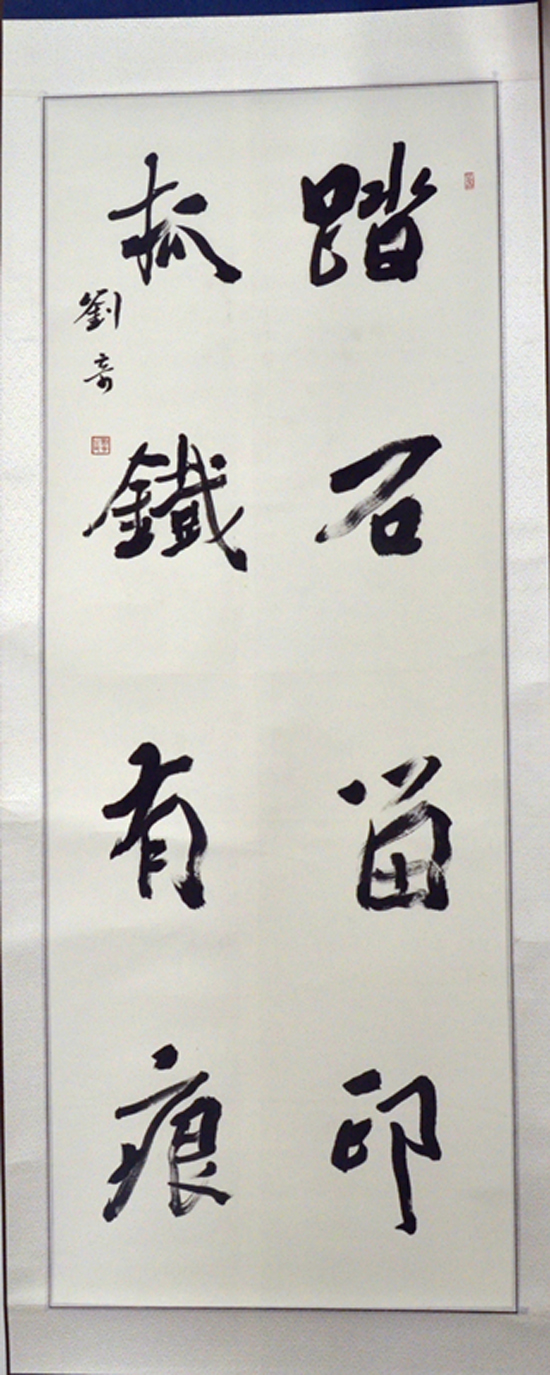 踏石留印
抓鐵有痕
劉奇